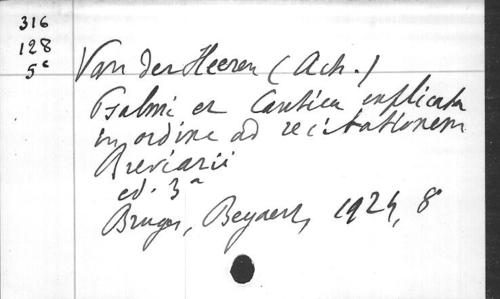 316
128
5c
Van der Heeren (Ach.)
Psalmi et Cantica explicata
in ordine ad recitationem
Breviarii
ed. 3a
Bruges, Beyaert, 1924, 8°